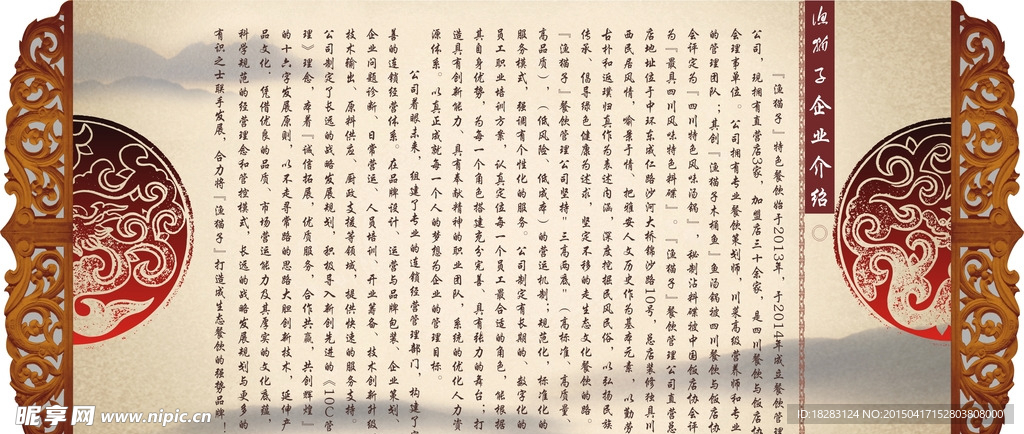 渔猫子企业介绍
『渔猫子』特色餐饮始于2013年，于2014年成立餐饮管理
公司，现拥有直营店3家，加盟店三十余家，是四川餐饮与饭店协
会理事单位。公司拥有专业餐饮策划师，川菜高级营养师和专业
的管理团队；其创『渔猫子木桶鱼』鱼汤锅被四川餐饮与饭店协
会评定为『四川特色风味汤锅』，秘制沾料碟被中国饭店协会评
为『最具四川风味特色料碟』。『渔猫子』餐饮管理公司直营总
店地址位于中环东成仁路沙河大桥锦沙路10号，总店装修独具川
西民居风情，喻景于情、把雅安人文历史作为基本元素，以勤劳
古朴和返璞归真作为表述内涵，深度挖掘民风民俗，以弘扬民族
传承、倡导绿色健康为述求，坚定不移的走生态文化餐饮的路
『渔猫子』餐饮管理公司坚持“三高两底”（高标准、高质量、
高品质）（低风险、低成本）的营运机制；规范化，标准化的
服务模式，强调有个性化的服务。公司制定有长期的、数字化的
员工职业培训方案，认真定位每一个员工最合适的角色，能根据
其自身优势，为每一个角色搭建充分完善、具有张力的舞台；打
造具有创新能力、具有奉献精神的职业团队，系统的优化人力资
源体系。以真正成就每一个人的梦想为企业的管理目标。
公司着眼未来，组建了专业的连锁经营管理部门，构建了完
善的连锁经营体系。在品牌设计、运营与品牌包装、企业策划、
企业问题诊断、日常营运、人员培训、开业筹备、技术创新升级
技术输出、原料供应、厨政支援等领域，提供快速的服务支持。
公司制定了长远的战略发展规划，积极导入新创先进的《10C管
理》理念，本着『诚信拓展，优质服务，合作共赢，共创辉煌』
的十六字发展原则，以不走寻常路的思路大胆创新技术，延伸产
品文化，凭借优良的品质、市场营运能力及其厚实的文化底蕴，
科学规范的经营理念和管控模式，长远的战略发展规划与更多的
有识之士联手发展，合力将『渔猫子』打造成生态餐饮的强势品牌！
昵享网 www.nipic.cn
ID:18283124 NO:20150417152803808000